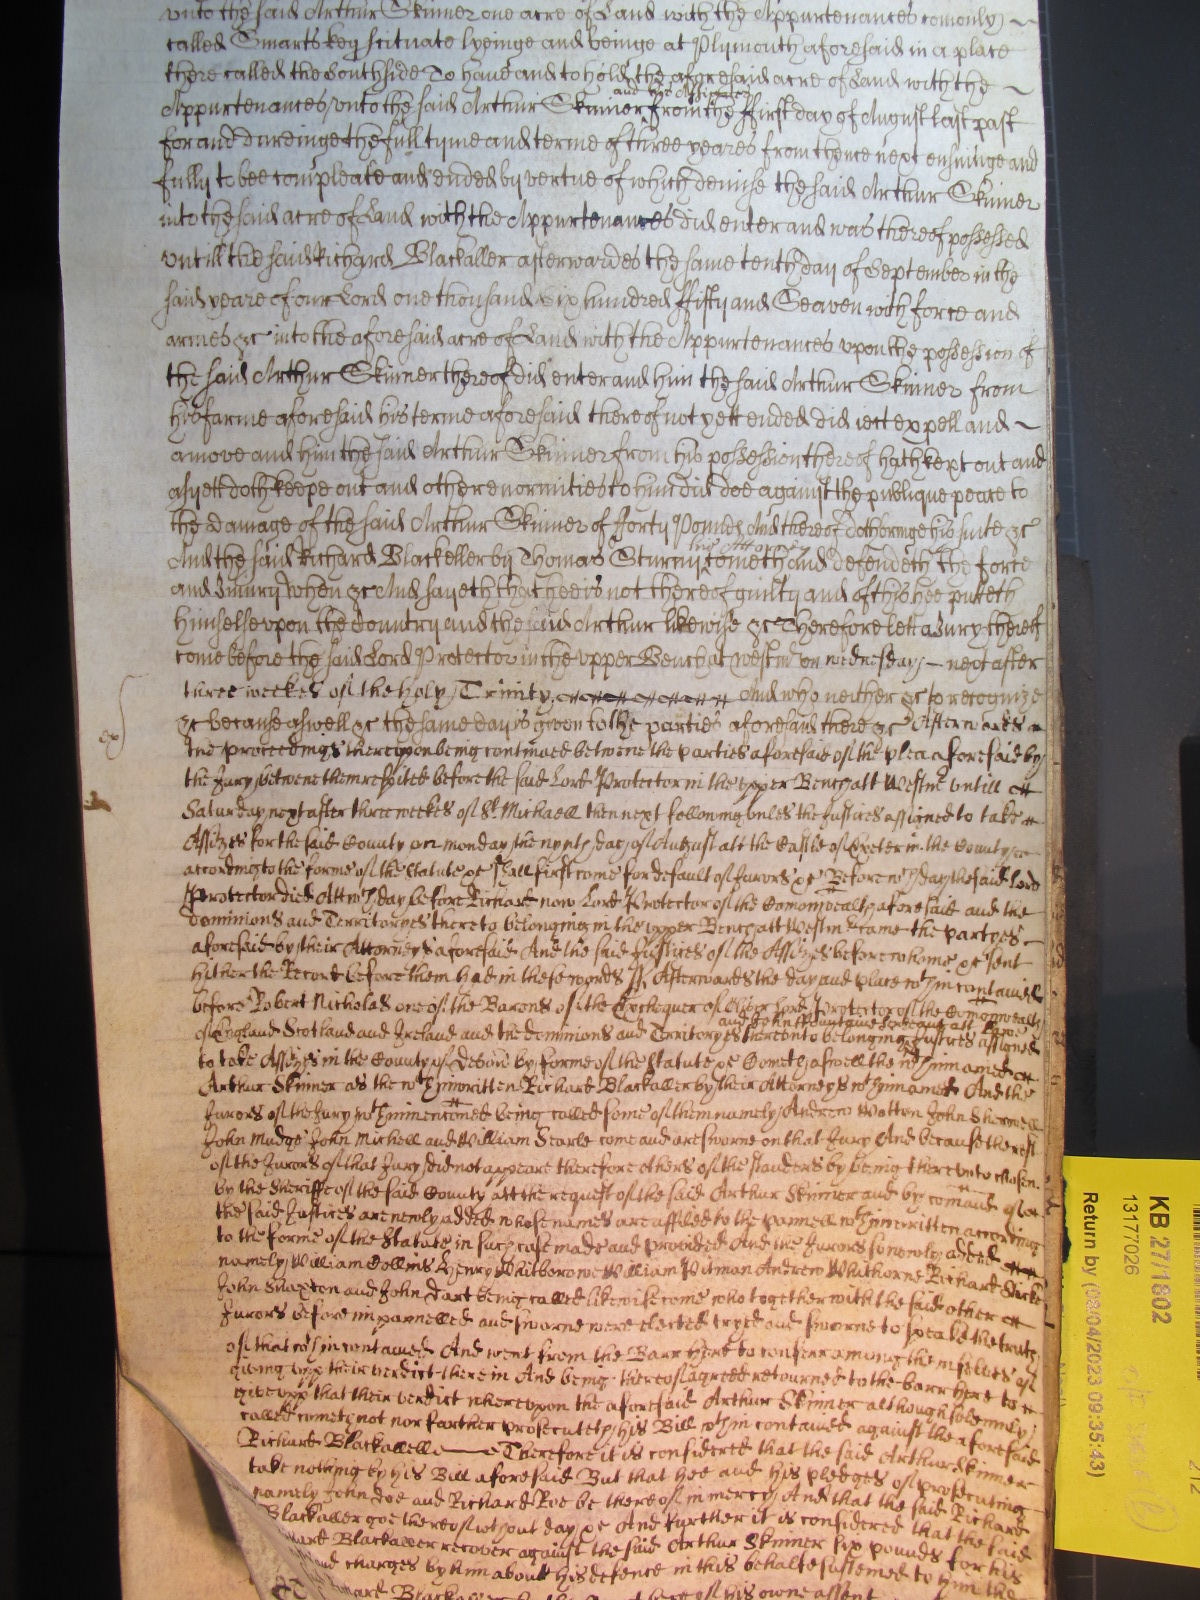 unto the said Arthur Skinner one acre of Land with the Appurtenances comonly
called Smarts key scituate lyeinge and beinge at Plymouth aforesaid in a place
there called the Southside To have and to hold the aforesaid acre of Land with the
and his Assignes
Appurtenances unto the said Arthur Skinner from the ffirst day of August last past
for and dureinge the full tyme and terme of three yeares from thence next ensuinge and
fully to bee compleate and ended by vertue of which demise the said Arthur Skinner
into the said acre of Land with the Appurtenances did enter and was thereof possessed
untill the said Richard Blackaller afterwardes the same tenth day of September in the
said yeare of our Lord one thousand Six hundred ffifty and Seaven with force and
armes &c into the aforesaid acre of Land with the Appurtenances upon the possession of
the said Arthur Skinner thereof did enter and him the said Arthur Skinner from
his farme aforesaid his terme aforesaid thereof not yett ended did iect expell and
amove and him the said Arthur Skinner from his possession thereof hath kept out and
as yett doth keepe out and other enormities to him did doe against the publique peace to
the damage of the said Arthur Skinner of forty Pounds And thereof doth bringe his suite &c
his Attorney
And the said Richard Blackeller by Thomas Sturmy cometh and defendeth the force
and Iniury when &c And sayeth that hee is not thereof guilty and of this hee putteth
himselfe upon the Country and the said Arthur likewise &c Therefore lett a Jury thereof
come before the said Lord Protector in the upper Bench at Westm on wednesday next after
three weekes of the holy Trinity And who neither &c to recognize
&c because aswell &c the same day is given to the parties aforesaid there &c Afterwardes
ex
the proceedings thereupon being continued betwene the parties aforesaid of the plea aforesaid by
the Jury betwene them respited before the said Lord Protector in the upper Bench att Westm untill
Saturday next after three weekes of St Michaell then next following unles the Justices assigned to take
Assizes for the said County on monday the nynth day of August att the Castle of Exeter in the County
according to the forme of the Statute &c shall first come for default of Jurors &c Before wch day the said lord
Protector died Att wch day before Richard now Lord Protector of the Comonwealth aforesaid and the
Dominions and Territoryes thereto belonging in the upper Bench att Westm came the partyes
aforesaid by their Attorneys aforesaid And the said Justices of the Assizes before whome &c sent
hither the Record before them had in these words ss Afterwards the day and place wthin contained
before Robert Nicholas one of the Barons of the Exchequer of Lord Protector of the Comonwealth
and John ffountaine Serjeant att Lawe
of England Scotland and Ireland and the dominions and Territoryes thereunto belonging Justices assigned
to take Assizes in the County of Devon by forme of the Statute &c Cometh aswell the wthin named
Arthur Skinner as the wthinwritten Richard Blackaller by their Attorneys wthin named And the
Jurors of the Jury wthin menconed being called some of them namely Andrew Wotton John Sherwell
John Mudge John Michell and William Searle come and are sworne on that Jury And because the rest
of the Jurors of that Jury did not appeare therefore others of the standers by being thereunto chosen
by the Sheriffe of the said County att the request of the said Arthur Skinner and by comand of
the said Justices are newly added whose names are affiled to the pannell wthinwritten according
to the forme of the Statute in such case made and provided And the Jurors so newly added
namely William Collins Henry Whitborowe William Pitman Andrew Whithorne Richard
John Snaxton and John Dart being called likewise come who together with the said other
Jurors before impannelled and sworne were elected tryed and sworne to speake the truth
of that wthin contained And went from the Barr here to conferr among themselves of
giving upp their verdict therein And being thereof agreed retourned to the barr here to
give upp that their verdict whereupon the aforesaid Arthur Skinner although solemnly
called cometh not nor farther prosecuteth his Bill wthin contained against the aforesaid
Richard Blackaller Therefore it is considered that the said Arthur Skinner
take nothing by his Bill aforesaid But that hee and his pledges of prosecuting
namely John Doe and Richard Roe be thereof in mercy And that the said Richard
Blackaller goe thereof without day &c And further it is considered that the said
Blackaller recover against the said Arthur Skinner six pounds for his
charges by him about his defence in this behalfe susteined to him the
Blackaller of his owne assent
KB 27/1802
13177026
Return by (08/04/2023 09:35:43)